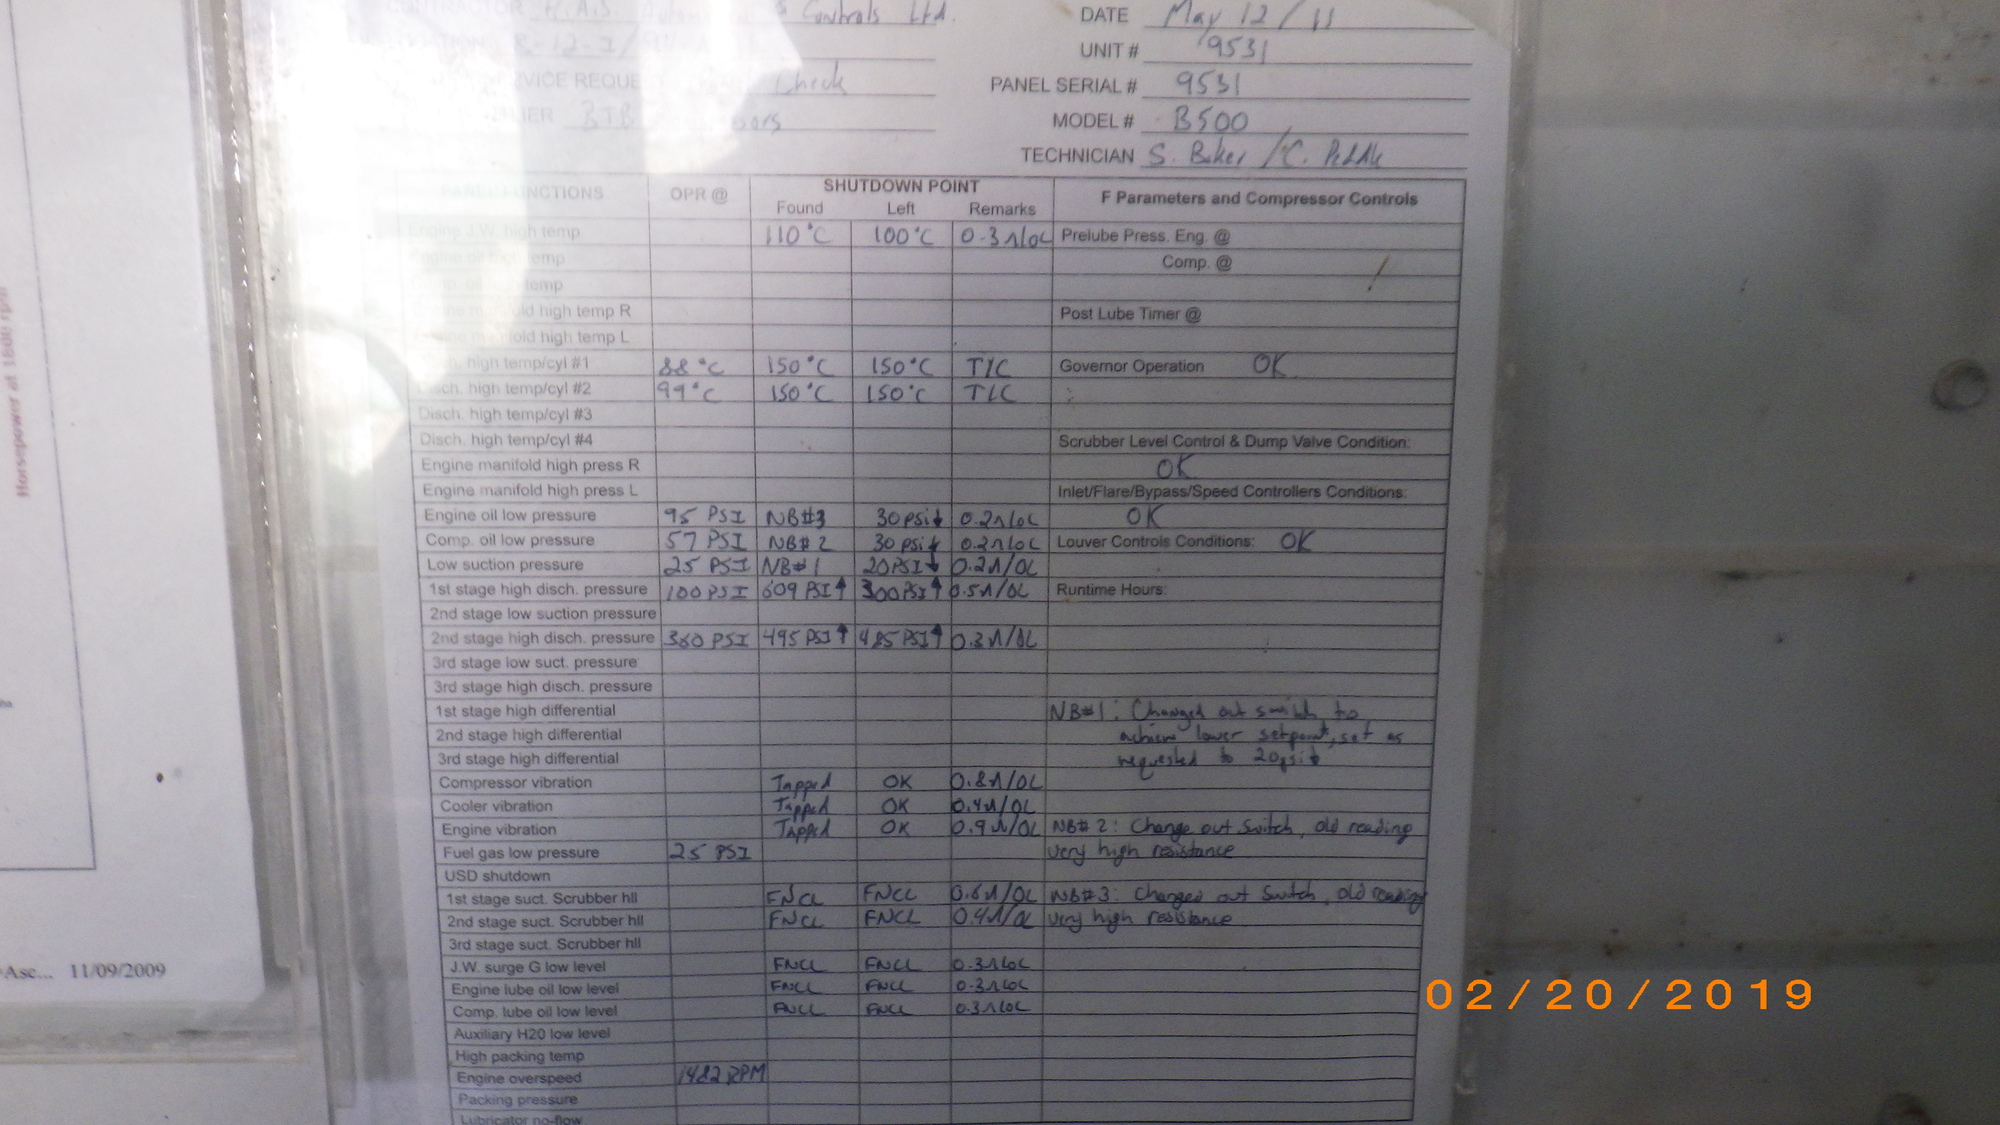 Controls Ltd. DATE May 12/11
R-12-I/ UNIT # 9531
SERVICE REQUE Check PANEL SERIAL # 9531
BTB MODEL # B500
TECHNICIAN S. Baker / C.
PANEL FUNCTIONS OPR @ SHUTDOWN POINT F Parameters and Compressor Controls
Found Left Remarks
Engine J.W. high temp 110°C 100°C 0.3Ω/OL Prelube Press. Eng. @
Engine oil high temp Comp. @
Comp. oil high temp
Engine manifold high temp R Post Lube Timer @
manifold high temp L
high temp/cyl #1 88°C 150°C 150°C T/C Governor Operation OK
Disch. high temp/cyl #2 99°C 150°C 150°C T/C
Disch. high temp/cyl #3
Disch. high temp/cyl #4 Scrubber Level Control & Dump Valve Condition:
Engine manifold high press R OK
Engine manifold high press L Inlet/Flare/Bypass/Speed Controllers Conditions:
Engine oil low pressure 95 PSI NB#3 30psi↓ 0.2Ω/OL OK
Comp. oil low pressure 57 PSI NB#2 30psi↓ 0.2Ω/OL Louver Controls Conditions: OK
Low suction pressure 25 PSI NB#1 20PSI↓ 0.2Ω/OL
1st stage high disch. pressure 100PSI 609 PSI↑ 300PSI↑ 0.5Ω/OL Runtime Hours:
2nd stage low suction pressure
2nd stage high disch. pressure 360 PSI 495 PSI↑ 485 PSI↑ 0.3Ω/OL
3rd stage low suct. pressure
3rd stage high disch. pressure
1st stage high differential NB#1: Changed out switch to
2nd stage high differential achieve lower setpoint, set as
3rd stage high differential requested to 20psi↓
Compressor vibration Tapped OK 0.8Ω/OL
Cooler vibration Tapped OK 0.4Ω/OL
Engine vibration Tapped OK 0.9Ω/OL NB#2: Change out Switch, old reading
Fuel gas low pressure 25 PSI very high resistance
USD shutdown
1st stage suct. Scrubber hll FNCL FNCL 0.6Ω/OL NB#3: Changed out Switch, old reading
2nd stage suct. Scrubber hll FNCL FNCL 0.4Ω/OL very high resistance
3rd stage suct. Scrubber hll
J.W. surge G low level FNCL FNCL 0.3Ω/OL
Engine lube oil low level FNCL FNCL 0.3Ω/OL
Comp. lube oil low level FNCL FNCL 0.3Ω/OL
Auxiliary H20 low level
High packing temp
Engine overspeed 1482 RPM
Packing pressure
Lubricator no-flow
Horsepower at 1800 rpm
Asc... 11/09/2009
02/20/2019